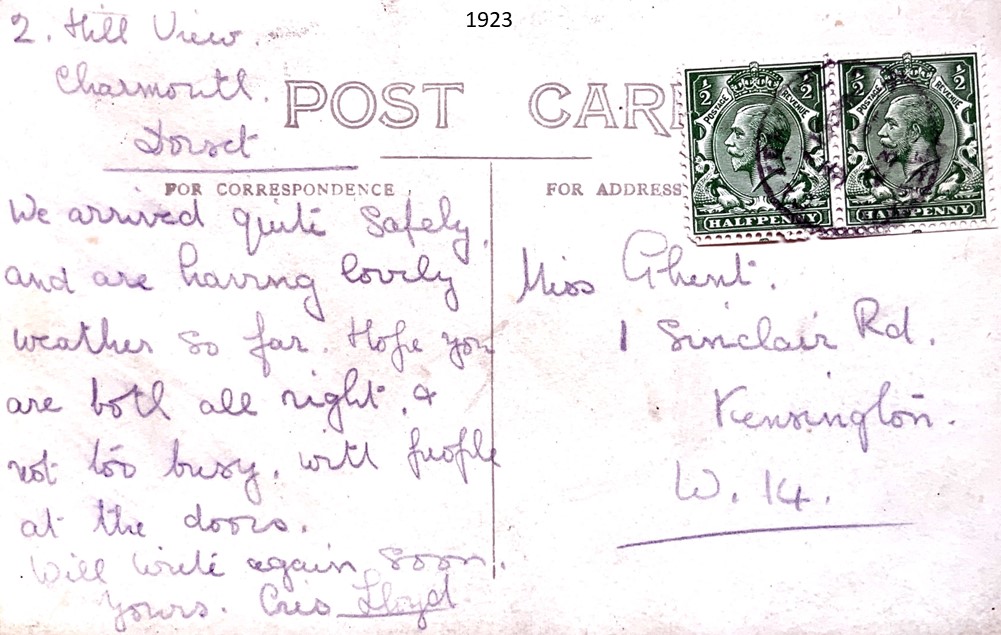 1923
2. Hill View.
Charmouth.
Dorset
POST CAR
FOR CORRESPONDENCE
FOR ADDRESS
½ ½
POSTAGE REVENUE
HALFPENNY
½ ½
POSTAGE REVENUE
HALFPENNY
We arrived quite safely,
and are having lovely
weather so far. Hope you
are both all right, &
not too busy, with people
at the doors.
Will write again soon.
Yours. Cris Lloyd
Miss Ghent.
1 Sinclair Rd.
Kensington.
W. 14.